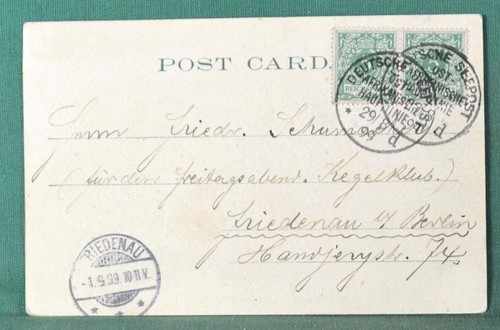 POST CARD.
DEUTSCHE SEEPOST
OST-
AFRIKANISCHE
HAUPTLINIE
29/3
99
d
Herrn Friedr. Schumacher
(für den Freitagsabend. Kegelklub.)
Friedenau b/ Berlin
Handjerystr. 74.
FRIEDENAU
-1.5.99.10-11V.
* * *